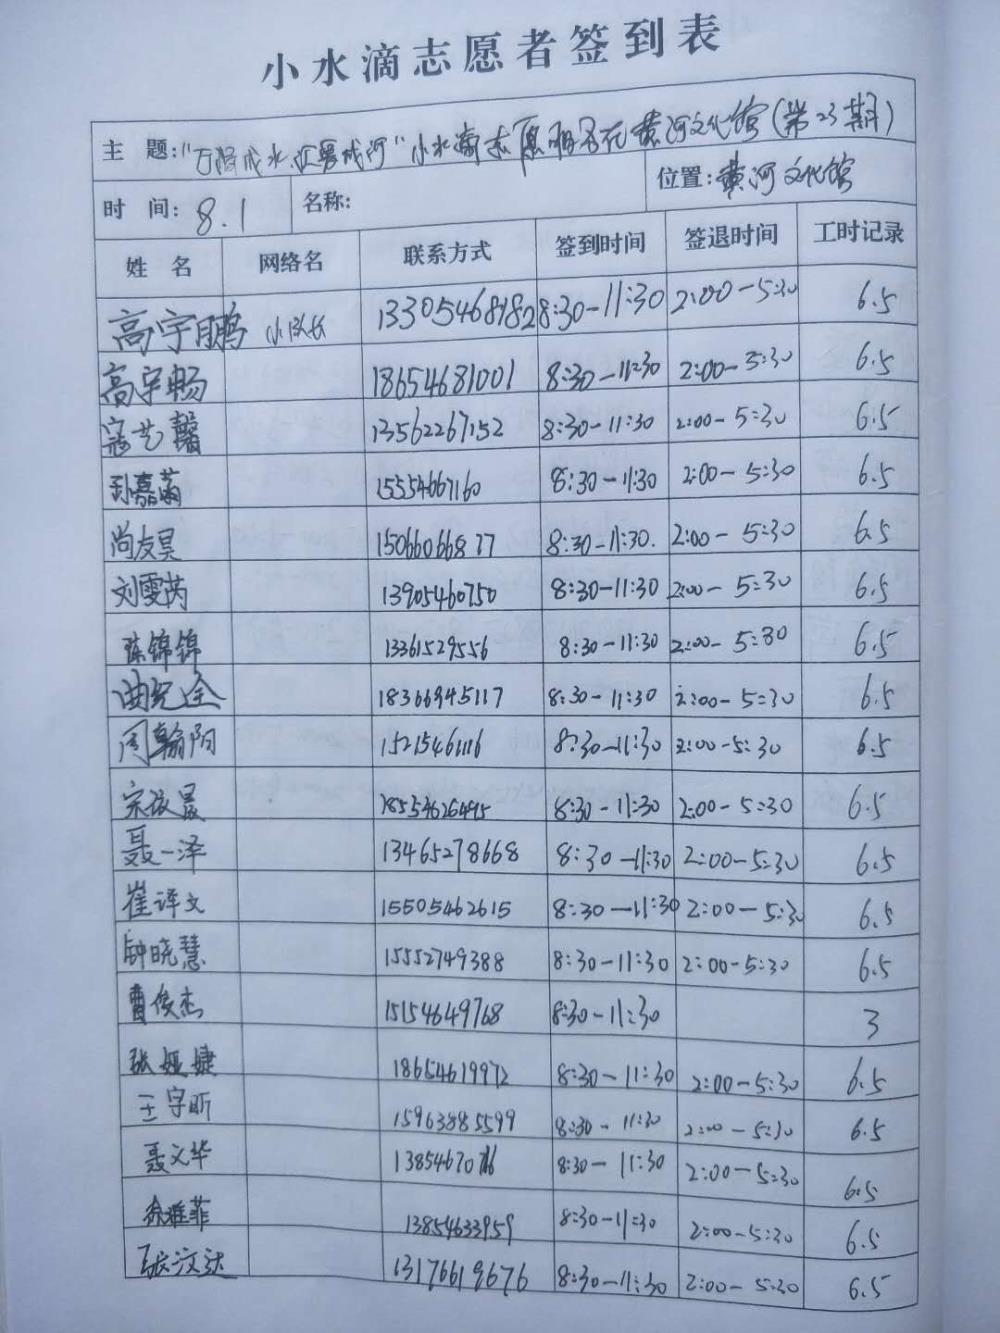 小水滴志愿者签到表
主 题:"万滴成水,汇募成河"小水滴志愿服务在黄河文化馆(第23期)
时 间: 8.1 名称: 位置:黄河文化馆
姓 名 网络名 联系方式 签到时间 签退时间 工时记录
高宇鹏 小队长 13305468982 8:30-11:30 2:00-5:30 6.5
高宇畅 18654681001 8:30-11:30 2:00-5:30 6.5
寇艺馨 13562267152 8:30-11:30 2:00-5:30 6.5
嘉 15554667160 8:30-11:30 2:00-5:30 6.5
尚友昊 15066066877 8:30-11:30. 2:00-5:30 6.5
刘雯芮 13905460750 8:30-11:30 2:00-5:30 6.5
陈锦锦 13361529556 8:30-11:30 2:00-5:30 6.5
曲 18366945117 8:30-11:30 2:00-5:30 6.5
周翰阳 15215461116 8:30-11:30 2:00-5:30 6.5
宋 18554626495 8:30-11:30 2:00-5:30 6.5
聂一泽 13465278668 8:30-11:30 2:00-5:30 6.5
崔译文 15505462615 8:30-11:30 2:00-5:30 6.5
钟晓慧 15552749388 8:30-11:30 2:00-5:30 6.5
曹俊杰 15154649768 8:30-11:30 3
张娅婕 18654619972 8:30-11:30 2:00-5:30 6.5
王字昕 15963885599 8:30-11:30 2:00-5:30 6.5
聂文华 8:30-11:30 2:00-5:30 6.5
徐雅菲 13854633959 8:30-11:30 2:00-5:30 6.5
张汶达 13176619676 8:30-11:30 2:00-5:30 6.5